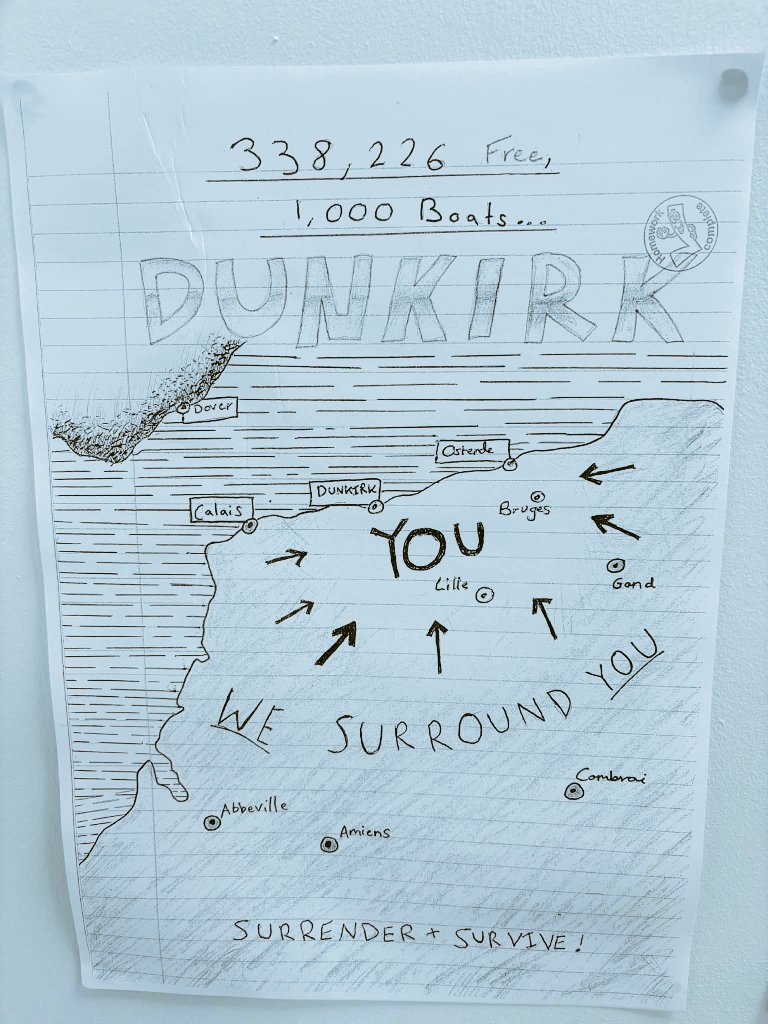 338,226 Free,
1,000 Boats...
Homework
complete
DUNKIRK
Dover
Ostende
DUNKIRK
Calais
Bruges
YOU
Gand
Lille
WE SURROUND YOU
Combrai
Abbeville
Amiens
SURRENDER + SURVIVE!